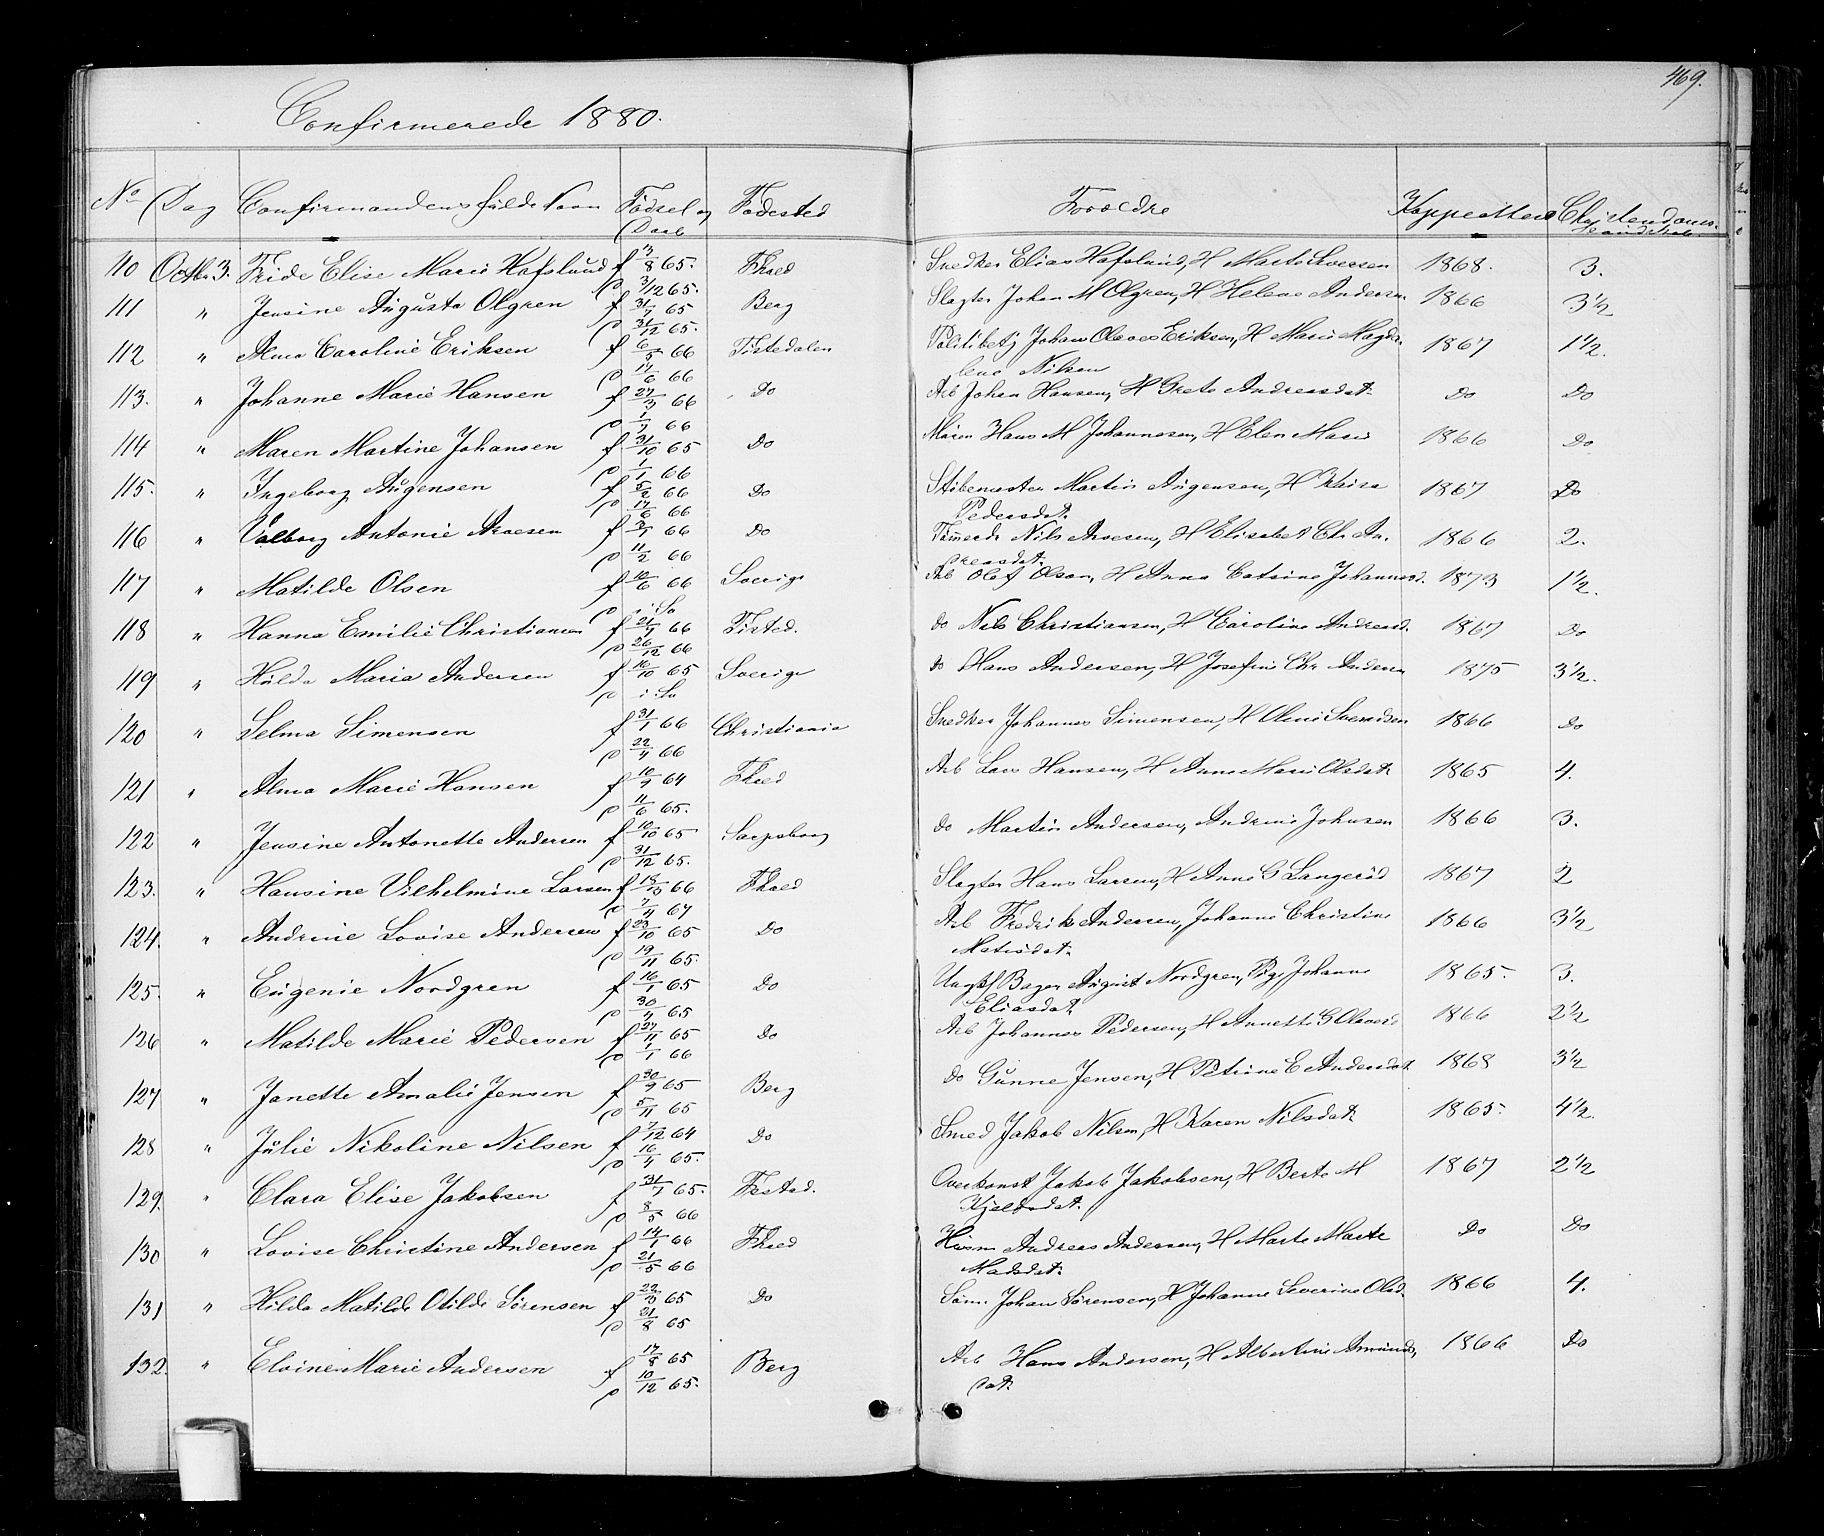 469.
Confirmerede 1880.
No Dag Confirmandens fulde Navn Fødsel og Daab Fødested Forældre Koppeattest Christendoms- kundskab.
110 Octbr 3. Fride Elise Marie Hafslund f 13/8 65. Fhald Snedker Elias Hafslund, H Marte Iversen 1868. 3.
D 3/12 65.
111 " Jensine Augusta Olgren f 31/7 65 Berg Slagter Johan M Olgren, H Helene Andersn 1866 3 1/2
D 31/12 65.
112 " Alma Caroline Eriksen f 6/3 66 Tistedalen Politibetj Johan Olaves Eriksen, H Marie Magda-
D 17/6 66 lene Nilsen 1867 1 1/2.
113. " Johanne Marie Hansen f 27/3 66 Do Arb Johan Hansen, H Grete Andreasdat. Do Do
D 1/7 66
114 " Maren Martine Johansen f 31/10 65 Do Hans M Johannesen, H Elen Marie 1866 Do
D 1/1 66
115. " Ingeborg Augensen f 5/2 66 Do Martin Augensen, H
D 17/6 66 Pedersdat. 1867 Do
116 " Valborg Antonie Aroesen f 3/1 66 Do Nils Aroesen, H Elisabet Chr An-
D 11/2 66 dreasdat. 1866 2.
117 " Matilde Olsen f 10/6 66 Sverige Arb Olof Olson, H Anna Catrine Johannesd. 1873 1 1/2.
D i Sv
118 " Hanna Emilie Christiansen f 21/9 66 Tisted. do Nils Christiansen, H Caroline Andreasd. 1867 Do
D 26/12 66
119 " Hilda Maria Andersen f 16/10 65 Sverige do Hans Andersen, H Josefine Chr Andersn 1875 3 1/2.
D i Sv
120 " Selma Simensen f 31/1 66 Christiania Snedker Johannes Simensen, H Oleni Svendsen 1866 do
D 22/4 66
121 " Alma Marie Hansen f 10/9 64 Fhald Arb Lars Hansen, H Anne Marie Olsdat 1865 4.
D 11/6 65.
122 " Jensine Antonette Andersen f 10/10 65 Sarpsborg do Martin Andersen, Andrine Johnsen 1866 3.
D 31/12 65.
123. " Hansine Vilhelmine Larsen f 18/3 66 Fhald Slagter Hans Larsen, H Anne G Langerød 1867 2
D 7/4 67
124. " Andrine Lovise Andersen f 23/10 65 Do Arb Fredrik Andersen, Johanne Christine
D 19/11 65. Matisdat. 1866 3 1/2
125. " Eugenie Nordgren f 16/1 65 Do Ungk Bager August Nordgren, Pige Johanne
D 30/4 65 Eliasdat 1865. 3.
126 " Matilde Marie Pedersen f 27/11 65 Do Arb Johannes Pedersen, H Annette G Olavesd 1866 2 1/2
D 1/1 66
127 " Janette Amalie Jensen f 30/9 65 Berg do Gunne Jensen, H Petrine E Andersdat. 1868 3 1/2
D 5/11 65
128 " Julie Nikoline Nilsen f 7/12 64 Do Smed Jakob Nilsen, H Karen Nilsdat 1865. 4 1/2.
D 16/4 65.
129. " Clara Elise Jakobsen f 31/7 65. Frstad. Overkonst Jakob Jakobsen, H Berte M
D 8/5 66 Kjeldsdat. 1867 2 1/2
130 " Lovise Christine Andersen f 14/1 66 Fhald Andreas Andersen, H Marte Marte
D 21/5 66 Madsdat. Do Do
131 " Hilda Matilde Otilde Sørensen f 22/3 65 Do Søm. Johan Sørensen, H Johanne Severine Olsd. 1866 4.
D 21/8 65
132. " Elvine Marie Andersen f 17/8 65 Berg Arb Hans Andersen, H Albertine Amunds-
D 10/12 65. dat. 1866 Do